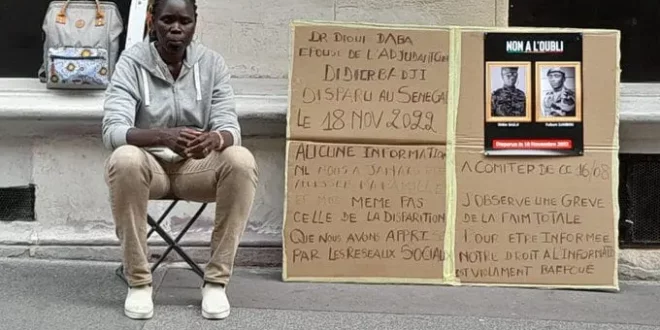 DR DIOUF DABA
EPOUSE DE L'ADJUDANT
DIDIER BADJI
DISPARU AU SENEGAL
LE 18 NOV 2022
AUCUNE INFORMATION
NE NOUS A JAMAIS
MA FAMILLE
ET MOI MEME PAS
CELLE DE LA DISPARITION
QUE NOUS AVONS APPRIS
PAR LES RESEAUX SOCIAUX
NON A L'OUBLI
Didier BADJI
Fulbert SAMBOU
Disparus le 18 Novembre 2022
A COMPTER DE CE 16/08
J'OBSERVE UNE GREVE
DE LA FAIM TOTALE
POUR ETRE INFORMEE
NOTRE DROIT A L'INFORMATION
EST VIOLAMENT BAFFOUE